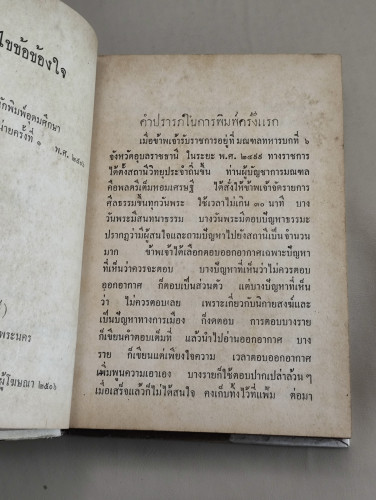 ไขข้อข้องใจ
กพิมพ์อุดมศึกษา
น่ายครั้งที่ ๑ พ.ศ. ๒๕๐๖
พระนคร
ผู้โฆษณา ๒๕๐๖
คำปรารภในการพิมพ์ครั้งแรก
เมื่อข้าพเจ้ารับราชการอยู่ที่ มณฑลทหารบกที่ ๖
จังหวัดอุบลราชธานี ในระยะ พ.ศ. ๒๔๙๙ ทางราชการ
ได้ตั้งสถานีวิทยุประจำถิ่นขึ้น ท่านผู้บัญชาการมณฑล
คือพลตรีเต็มหอมเศรษฐี ได้สั่งให้ข้าพเจ้าจัดรายการ
ศีลธรรมขึ้นทุกวันพระ ใช้เวลาไม่เกิน ๓๐ นาที บาง
วันพระมีสนทนาธรรม บางวันพระมีตอบปัญหาธรรมะ
ปรากฏว่ามีผู้สนใจและถามปัญหาไปยังสถานีเป็นจำนวน
มาก ข้าพเจ้าได้เลือกตอบออกอากาศเฉพาะปัญหา
ที่เห็นว่าควรจะตอบ บางปัญหาที่เห็นว่าไม่ควรตอบ
ออกอากาศ ก็ตอบเป็นส่วนตัว แต่บางปัญหาที่เห็น
ว่า ไม่ควรตอบเลย เพราะเกี่ยวกับนิกายสงฆ์และ
เป็นปัญหาทางการเมือง ก็งดตอบ การตอบบางราย
ก็เขียนคำตอบเต็มที่ แล้วนำไปอ่านออกอากาศ บาง
ราย ก็เขียนแต่เพียงใจความ เวลาตอบออกอากาศ
เพิ่มพูนความเอาเอง บางรายก็ใช้ตอบปากเปล่าล้วน ๆ
เมื่อเสร็จแล้วก็ไม่ได้สนใจ คงเก็บทิ้งไว้ที่แฟ้ม ต่อมา